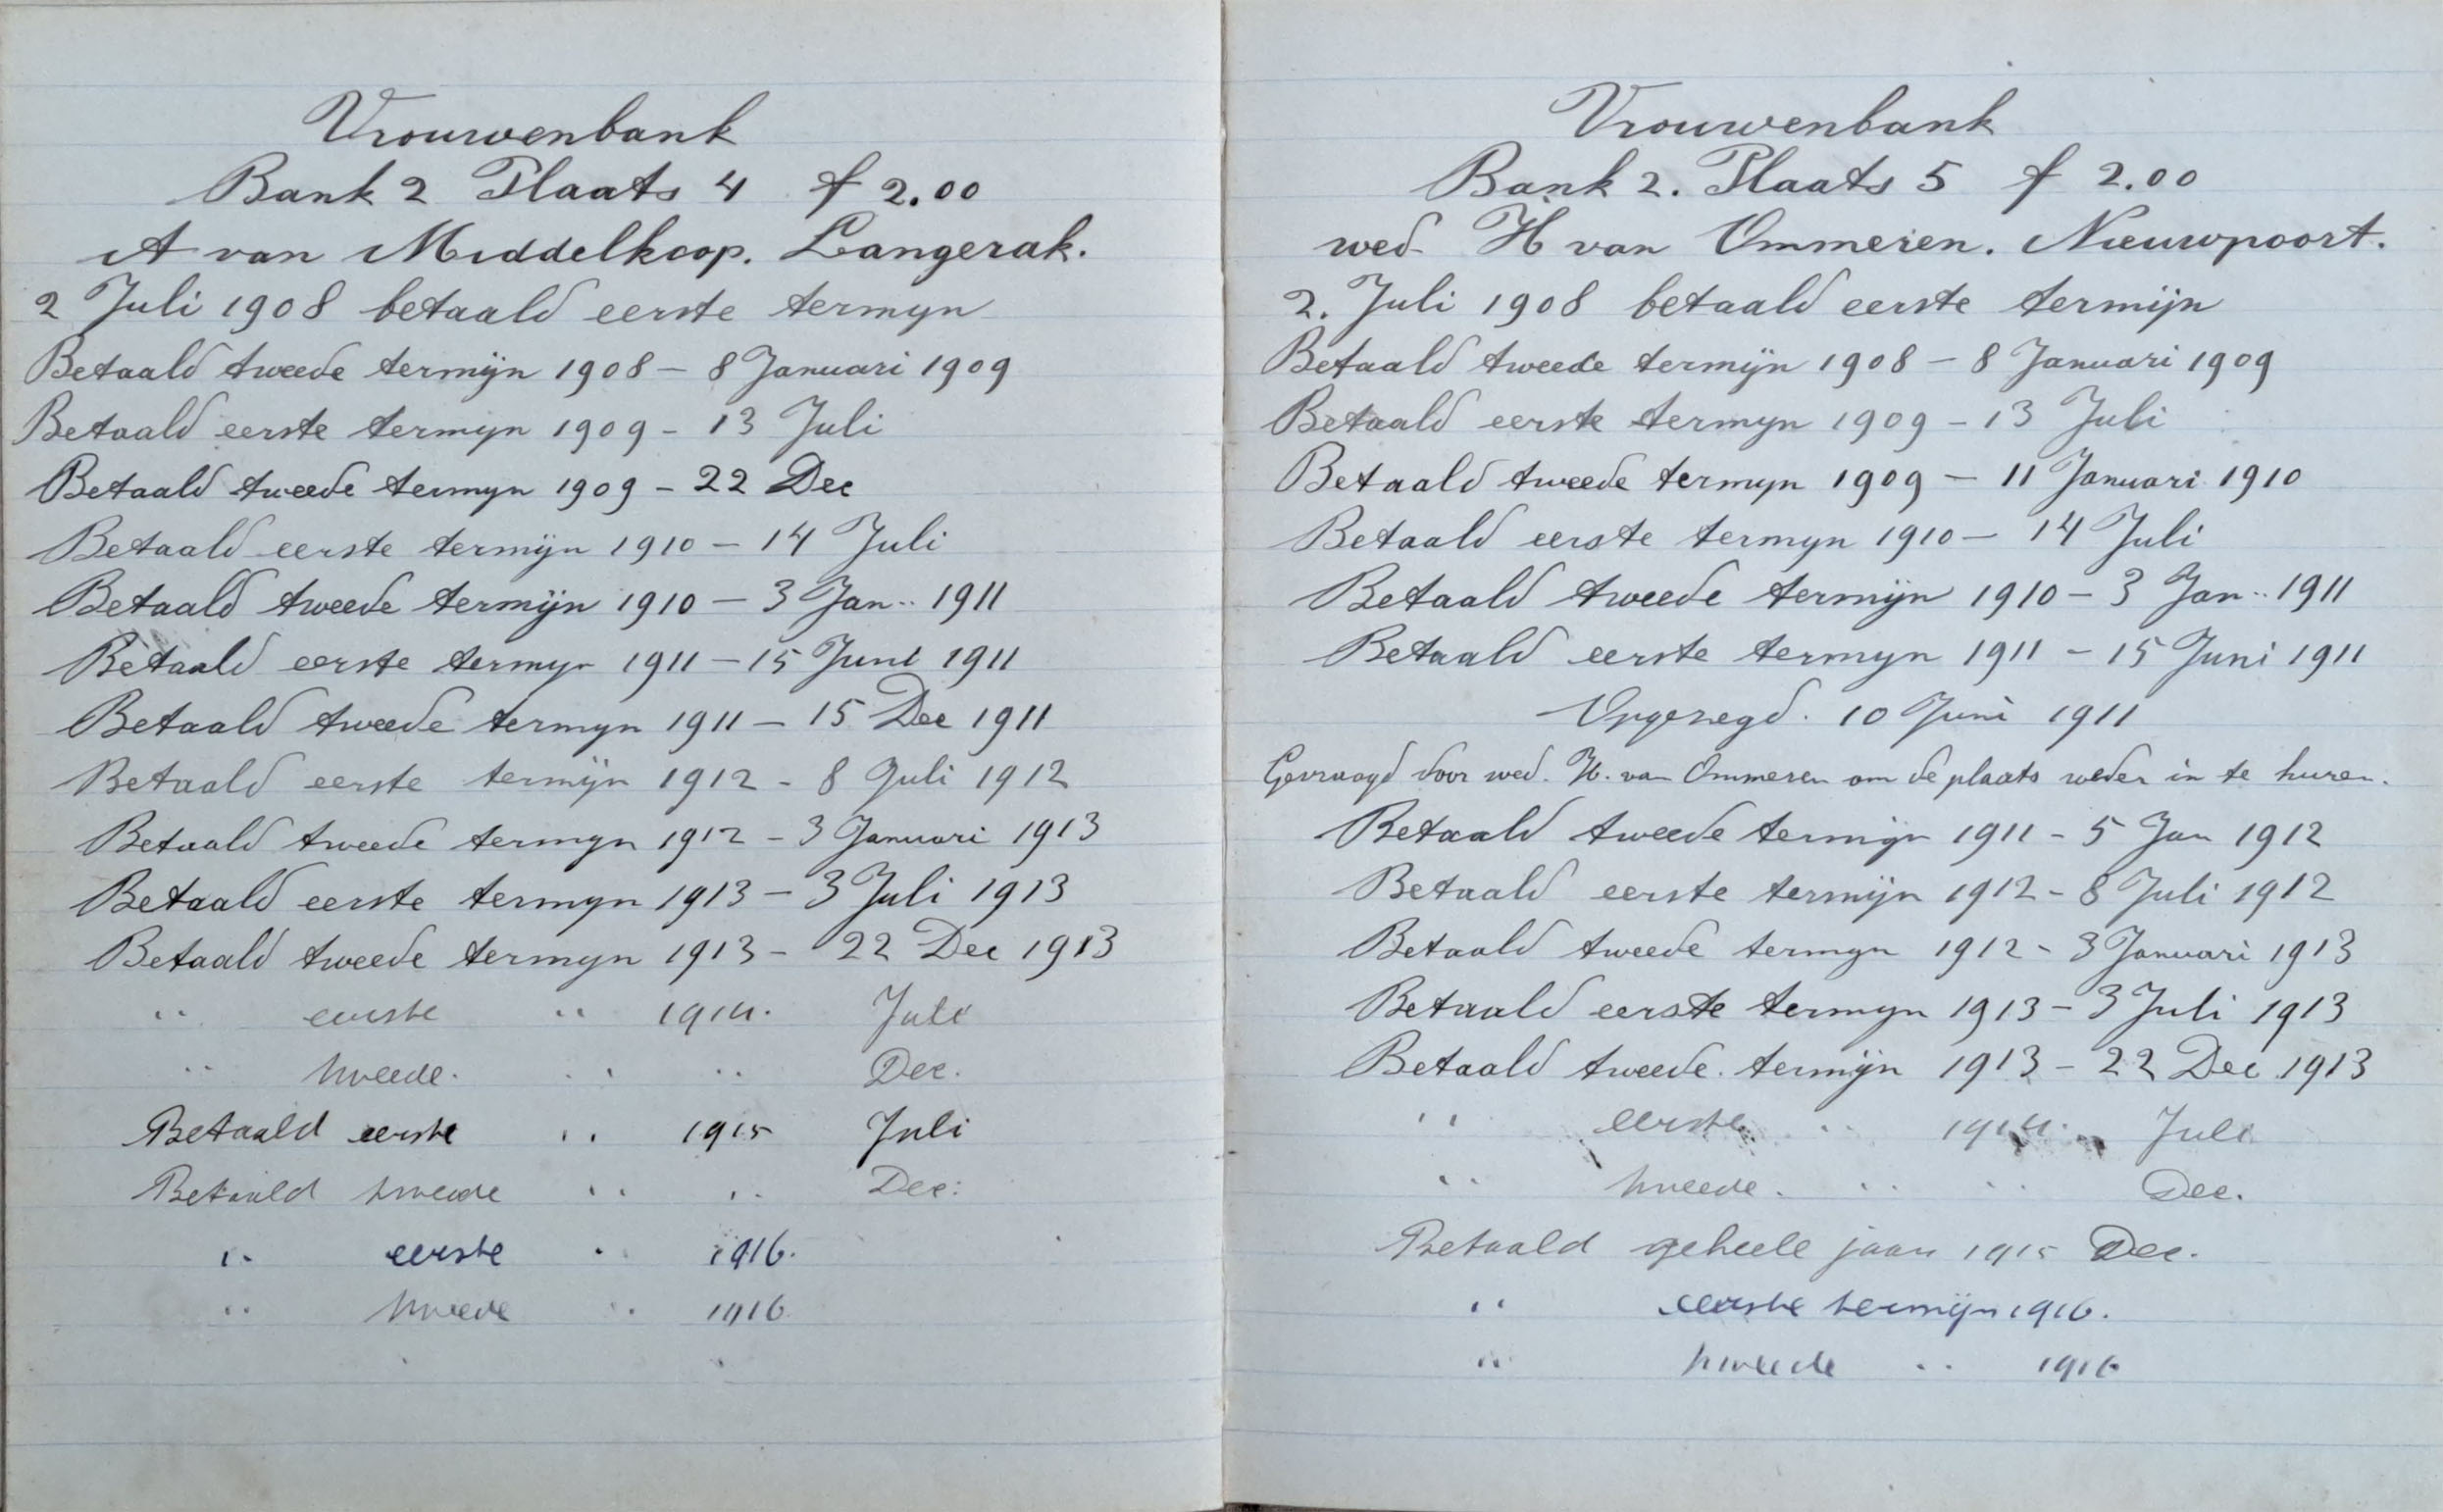 Vrouwenbank
Bank 2 Plaats 4 f 2.00
A van Middelkoop. Langerak.
2 Juli 1908 betaald eerste termyn
Betaald tweede termijn 1908 – 8 Januari 1909
Betaald eerste termyn 1909 – 13 Juli
Betaald tweede termyn 1909 – 22 Dec
Betaald eerste termijn 1910 – 14 Juli
Betaald tweede termijn 1910 – 3 Jan.. 1911
Betaald eerste termyn 1911 – 15 Juni 1911
Betaald tweede termyn 1911 – 15 Dec 1911
Betaald eerste termijn 1912 – 8 Juli 1912
Betaald tweede termyn 1912 – 3 Januari 1913
Betaald eerste termyn 1913 – 3 Juli 1913
Betaald tweede termyn 1913 – 22 Dec 1913
" eerste " 1914. Juli
" tweede. " " Dec.
Betaald eerste " 1915 Juli
Betaald tweede " " Dec.
" eerste " 1916.
" tweede " 1916
Vrouwenbank
Bank 2. Plaats 5 f 2.00
wed. H van Ommeren. Nieuwpoort.
2. Juli 1908 betaald eerste termijn
Betaald tweede termijn 1908 – 8 Januari 1909
Betaald eerste termyn 1909 – 13 Juli
Betaald tweede termyn 1909 – 11 Januari 1910
Betaald eerste termyn 1910 – 14 Juli
Betaald tweede termijn 1910 – 3 Jan.. 1911
Betaald eerste termyn 1911 – 15 Juni 1911
Opgezegd. 10 Juni 1911
Gevraagd door wed. H. van Ommeren om de plaats weder in te huren.
Betaald tweede termijn 1911 – 5 Jan 1912
Betaald eerste termijn 1912 – 8 Juli 1912
Betaald tweede termyn 1912 – 3 Januari 1913
Betaald eerste termyn 1913 – 3 Juli 1913
Betaald tweede termijn 1913 – 22 Dec 1913
" eerste " 1914. Juli
" tweede. " " Dec.
Betaald geheele jaar 1915 Dec.
" eerste termijn 1916.
" tweede " 1916